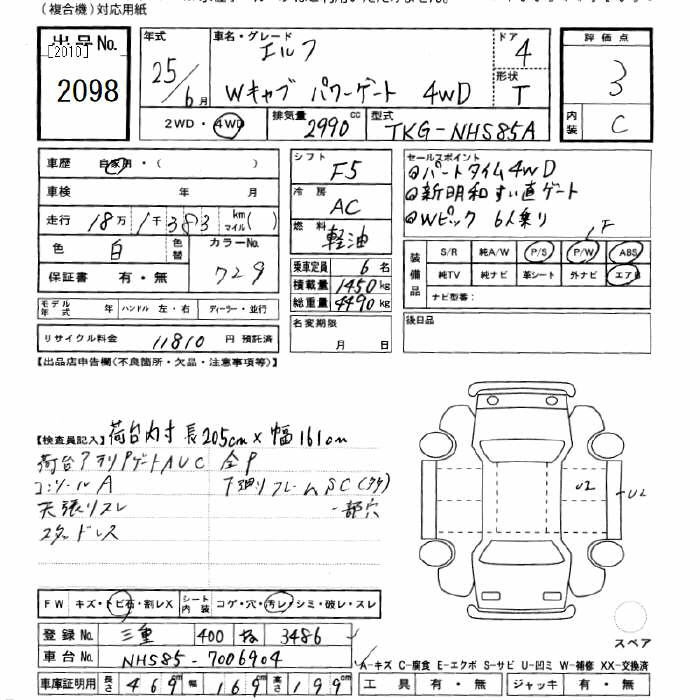 (複合機)対応用紙
出品No.
[2010]
2098
年式
25/6月
車名・グレード
エルフ
Wキャブ パワーゲート 4WD
ドア
4
形状
T
評価点
3
内装
C
2WD・4WD
排気量
2990cc
型式
TKG-NHS85A
車歴 自家用・( )
車検 年 月
走行 18万1千383 km マイル( )
色 白 色替 カラーNo. 729
保証書 有・無
モデル年式 年 ハンドル 左・右 ディーラー・並行
リサイクル料金 11810 円 預託済
シフト
F5
冷房
AC
燃料
軽油
乗車定員 6名
積載量 1450kg
総重量 4490kg
名変期限
月 日
セールスポイント
①パートタイム4WD
②新明和すい直ゲート
③Wピック 6人乗り
F
装備品
S/R 純A/W P/S P/W ABS
純TV 純ナビ 革シート 外ナビ エアB
ナビ型番:
後日品
【出品店申告欄(不良箇所・欠品・注意事項等)】
【検査員記入】荷台内寸 長205cm×幅161cm
荷台アオリPゲートAUC 全P
コンソールA 下廻りフレームSC(タケ)
天張りスレ 一部穴
スタッドレス
U2
U2
スペア
FW キズ・トビ石・割レX シート内装 コゲ・穴・汚レ・シミ・破レ・スレ
登録No. 三重 400 3486
車台No. NHS85-7006904
車庫証明用 長さ 469 幅 169 高さ 199cm
A-キズ C-腐食 E-エクボ S-サビ U-凹ミ W-補修 XX-交換済
工具 有・無 ジャッキ 有・無